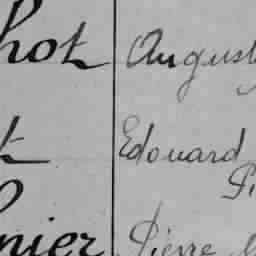 hot August
t Edouard
Pi
nier Pierre